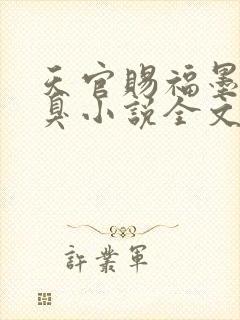 天官賜福墨
真小說全文
許業軍